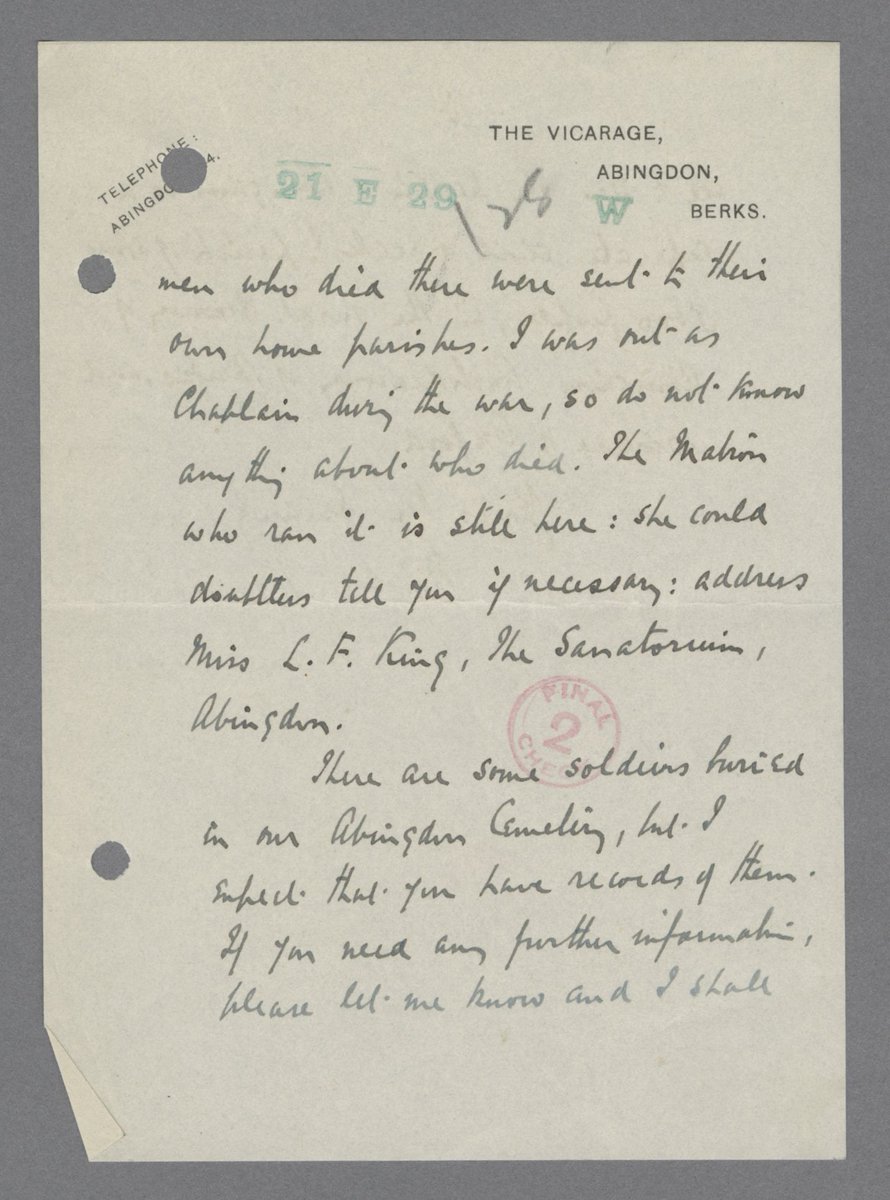 TELEPHONE:
ABINGDON 4.
THE VICARAGE,
ABINGDON,
BERKS.
21 E 29 W
men who died there were sent to their
own home parishes. I was out as
Chaplain during the war, so do not know
anything about who died. The Matron
who ran it is still here: she could
doubtless tell you if necessary: address
Miss L. F. King, The Sanatorium,
Abingdon.
FINAL
2
CHECK
There are some soldiers buried
in our Abingdon Cemetery, but I
expect that you have records of them.
If you need any further information,
please let me know and I shall